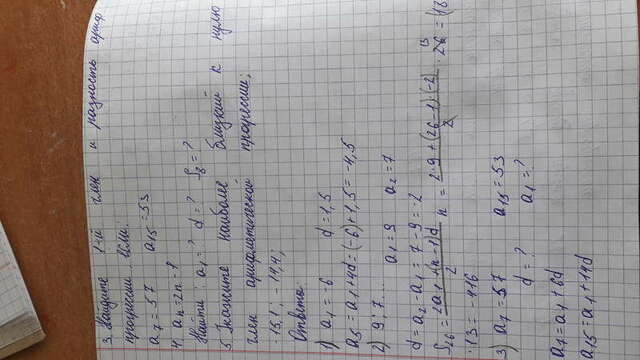 3. Найдите 1-й член и разность ариф.
прогрессии если:
a₇ = 57 a₁₅ = 53
4. aₙ = 2n-1
Найти: a₁ = ? d = ? S₈ = ?
5 Укажите наиболее близкий к нулю
член арифметической прогрессии;
-15,1; -14,4;
Ответы
1) a₁ = 6 d = 1,5
a₅ = a₁ + 4d = (-6) + 1,5 = -4,5
2) 9; 7... a₁ = 9 a₂ = 7
d = a₂ - a₁ = 7 - 9 = -2
S₂₆ = (2a₁ + (n-1)d)/2 · n = (2·9 + (26-1)·(-2))/2 · 26
· 13 = -416
3) a₇ = 57 a₁₅ = 53
d = ? a₁ = ?
a₇ = a₁ + 6d
a₁₅ = a₁ + 14d